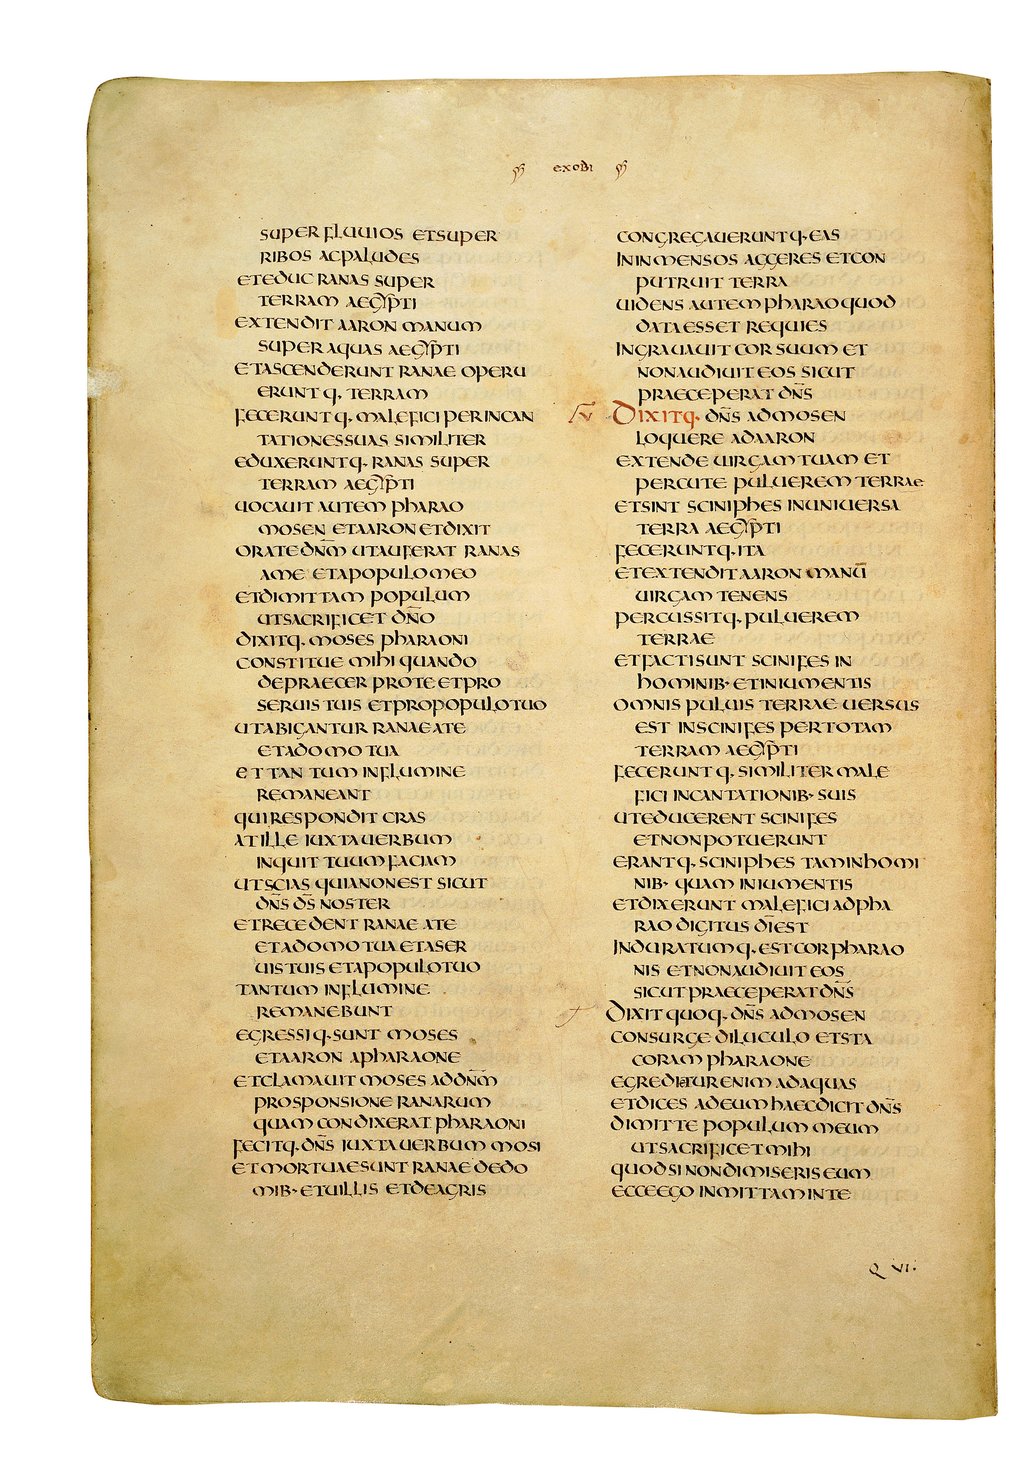 EXODI
SUPER FLUUIOS ET SUPER
RIBOS AC PALUDES
ET EDUC RANAS SUPER
TERRAM AEGYPTI
EXTENDIT AARON MANUM
SUPER AQUAS AEGYPTI
ET ASCENDERUNT RANAE OPERU
ERUNTQ· TERRAM
FECERUNTQ· MALEFICI PER INCAN
TATIONES SUAS SIMILITER
EDUXERUNTQ· RANAS SUPER
TERRAM AEGYPTI
UOCAUIT AUTEM PHARAO
MOSEN ET AARON ET DIXIT
ORATE DN̄M UT AUFERAT RANAS
A ME ET A POPULO MEO
ET DIMITTAM POPULUM
UT SACRIFICET DN̄O
DIXITQ· MOSES PHARAONI
CONSTITUE MIHI QUANDO
DEPRAECER PRO TE ET PRO
SERUIS TUIS ET PRO POPULO TUO
UT ABIGANTUR RANAE A TE
ET A DOMO TUA
ET TANTUM IN FLUMINE
REMANEANT
QUI RESPONDIT CRAS
AT ILLE IUXTA UERBUM
INQUIT TUUM FACIAM
UT SCIAS QUIA NON EST SICUT
DN̄S D̄S NOSTER
ET RECEDENT RANAE A TE
ET A DOMO TUA ET A SER
UIS TUIS ET A POPULO TUO
TANTUM IN FLUMINE
REMANEBUNT
EGRESSIQ· SUNT MOSES
ET AARON A PHARAONE
ET CLAMAUIT MOSES AD DN̄M
PRO SPONSIONE RANARUM
QUAM CONDIXERAT PHARAONI
FECITQ· DN̄S IUXTA UERBUM MOSI
ET MORTUAE SUNT RANAE DE DO
MIB· ET UILLIS ET DE AGRIS
CONGREGAUERUNTQ· EAS
IN INMENSOS AGGERES ET CON
PUTRUIT TERRA
UIDENS AUTEM PHARAO QUOD
DATA ESSET REQUIES
INGRAUAUIT COR SUUM ET
NON AUDIUIT EOS SICUT
PRAECEPERAT DN̄S
DIXITQ· DN̄S AD MOSEN
LOQUERE AD AARON
EXTENDE UIRGAM TUAM ET
PERCUTE PULUEREM TERRAE
ET SINT SCINIPHES IN UNIUERSA
TERRA AEGYPTI
FECERUNTQ· ITA
ET EXTENDIT AARON MANŪ
UIRGAM TENENS
PERCUSSITQ· PULUEREM
TERRAE
ET FACTI SUNT SCINIFES IN
HOMINIB· ET IN IUMENTIS
OMNIS PULUIS TERRAE UERSUS
EST IN SCINIFES PER TOTAM
TERRAM AEGYPTI
FECERUNTQ· SIMILITER MALE
FICI INCANTATIONIB· SUIS
UT EDUCERENT SCINIFES
ET NON POTUERUNT
ERANTQ· SCINIPHES TAM IN HOMI
NIB· QUAM IN IUMENTIS
ET DIXERUNT MALEFICI AD PHA
RAO DIGITUS D̄I EST
INDURATUMQ· EST COR PHARAO
NIS ET NON AUDIUIT EOS
SICUT PRAECEPERAT DN̄S
DIXIT QUOQ· DN̄S AD MOSEN
CONSURGE DILUCULO ET STA
CORAM PHARAONE
EGREDIETUR ENIM AD AQUAS
ET DICES AD EUM HAEC DICIT DN̄S
DIMITTE POPULUM MEUM
UT SACRIFICET MIHI
QUOD SI NON DIMISERIS EUM
ECCE EGO INMITTAM IN TE
Q VI·